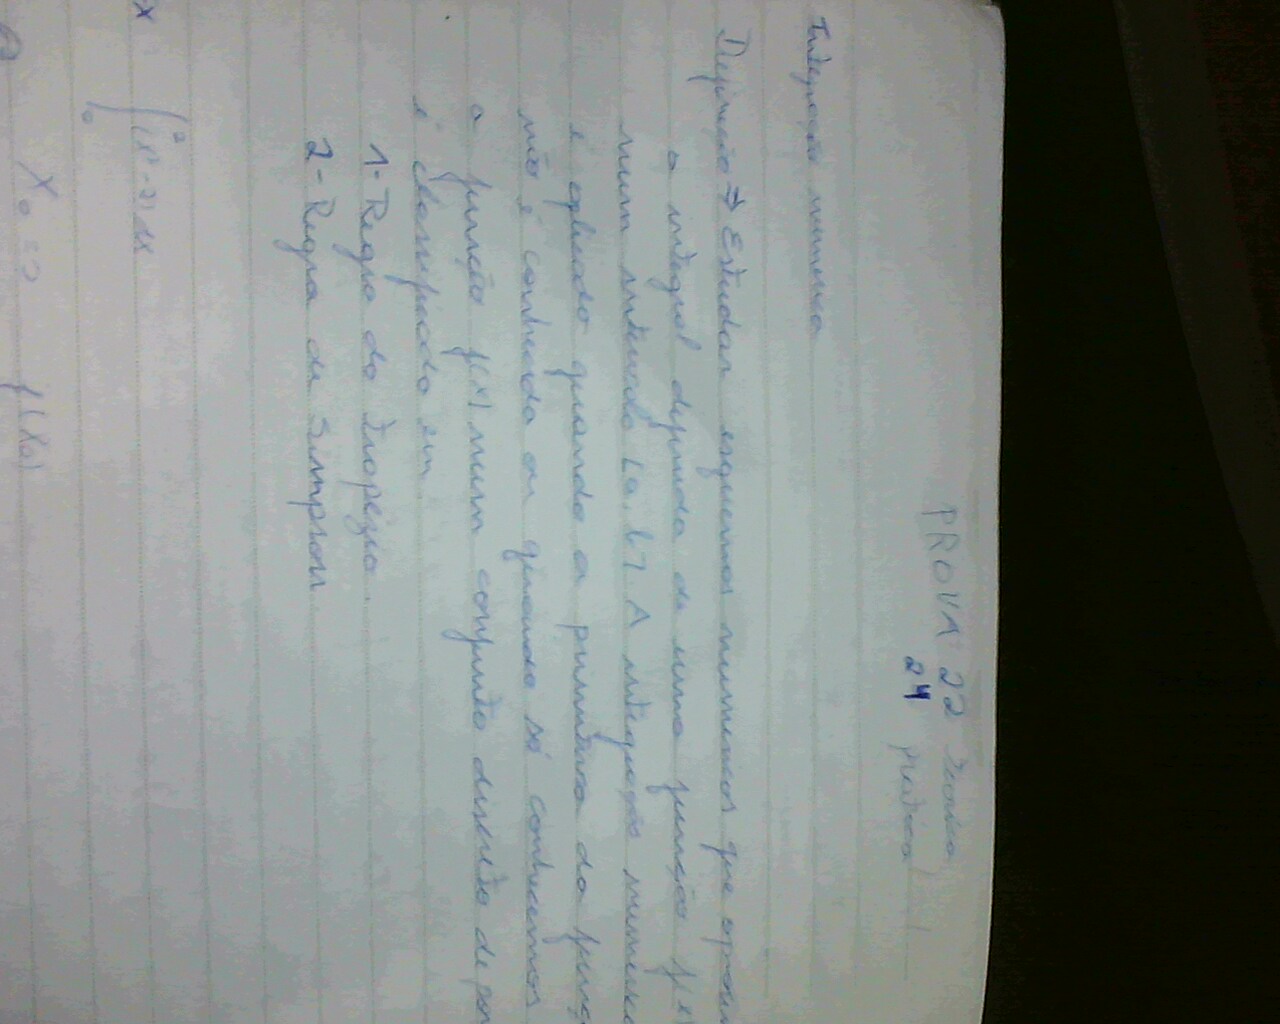 PROVA 22 Teorica
24 pratica
Integração numerica
Definição → Estudar esquemas numericos que aproxi
a integral definida de uma função f(x)
num intervalo [a, b]. A integração numerica
é aplicado quando a primitiva da funç
não é conhecida ou quando só conhecemos
a função f(x) num conjunto discreto de pon
é classificado em
1-Regra do Trapezio.
2-Regra de Simpson
x
∫
2
0
X0 = f(x0)